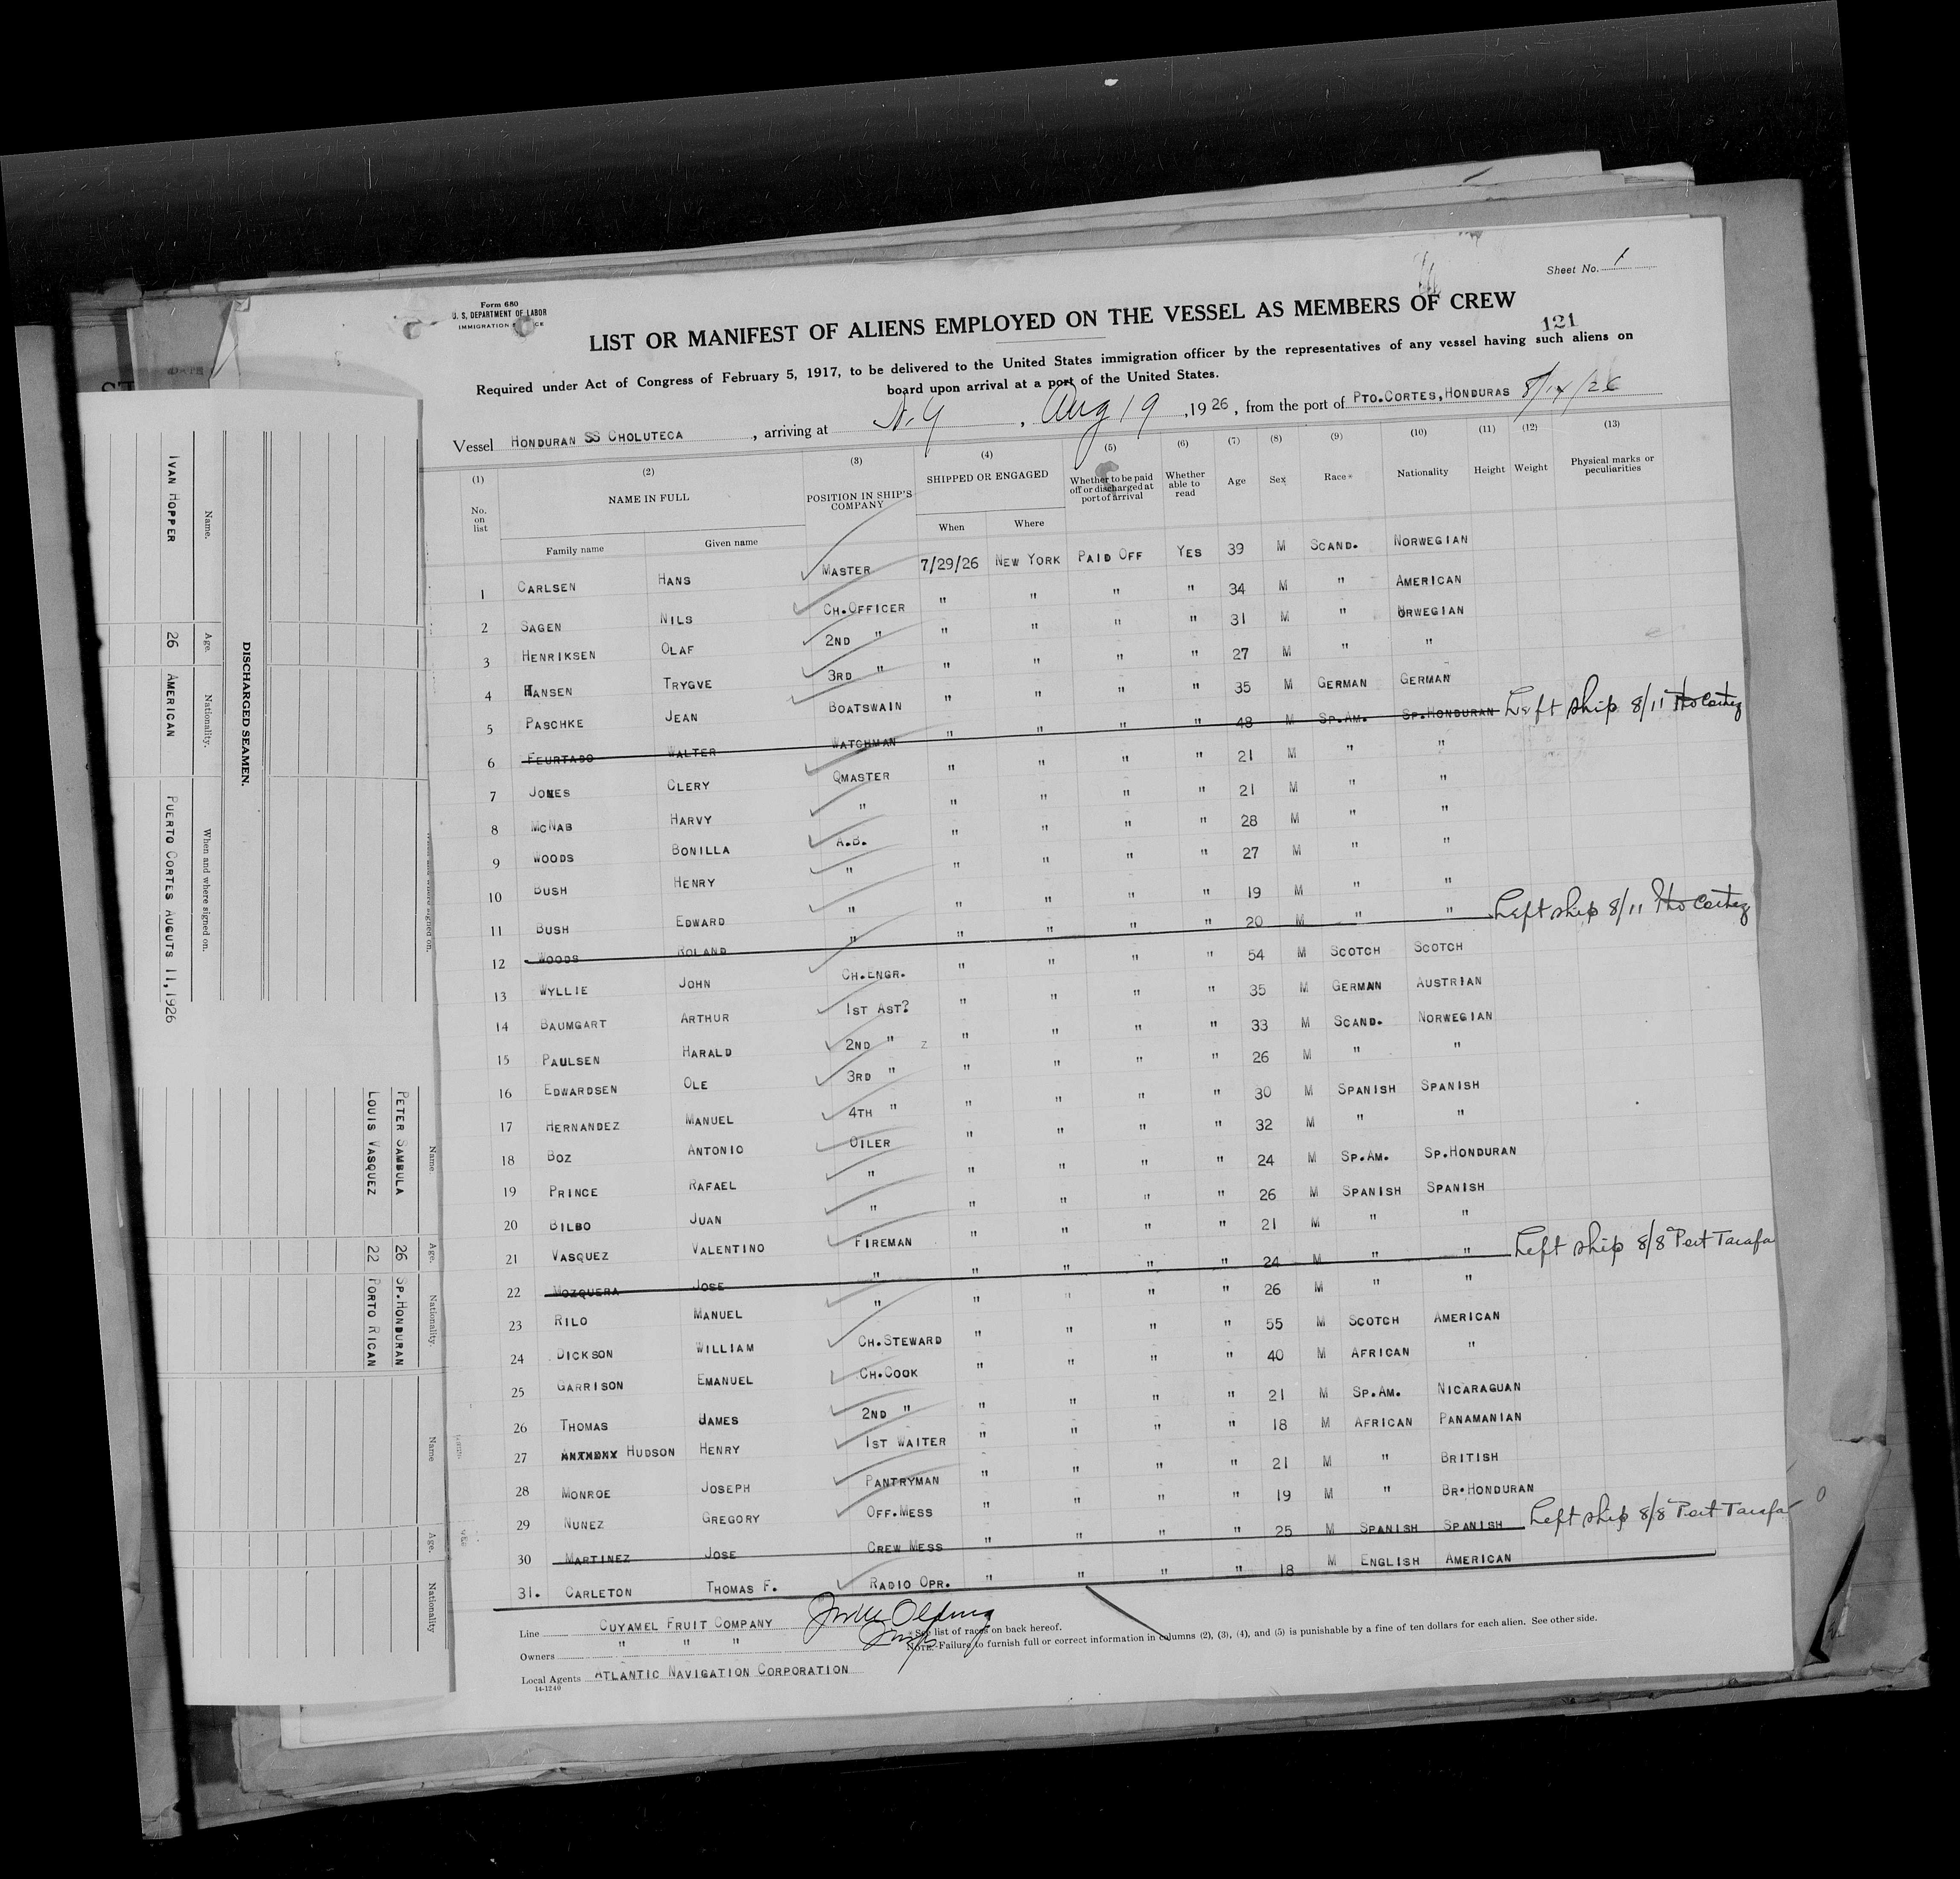 Sheet No. 1
Form 680
U. S. DEPARTMENT OF LABOR
IMMIGRATION
LIST OR MANIFEST OF ALIENS EMPLOYED ON THE VESSEL AS MEMBERS OF CREW
121
Required under Act of Congress of February 5, 1917, to be delivered to the United States immigration officer by the representatives of any vessel having such aliens on
board upon arrival at a port of the United States.
Vessel HONDURAN SS CHOLUTECA, arriving at N.Y, Aug 19, 1926, from the port of PTO.CORTES, HONDURAS
(1) (2) (3) (4) (5) (6) (7) (8) (9) (10) (11) (12) (13)
No. on list NAME IN FULL POSITION IN SHIP'S COMPANY SHIPPED OR ENGAGED Whether to be paid off or discharged at port of arrival Whether able to read Age Sex Race* Nationality Height Weight Physical marks or peculiarities
Family name Given name When Where
1 CARLSEN HANS MASTER 7/29/26 NEW YORK PAID OFF YES 39 M SCAND. NORWEGIAN
2 SAGEN NILS CH.OFFICER " " " " 34 M " AMERICAN
3 HENRIKSEN OLAF 2ND " " " " " 31 M " NORWEGIAN
4 HANSEN TRYGVE 3RD " " " " " 27 M " "
5 PASCHKE JEAN BOATSWAIN " " " " 35 M GERMAN GERMAN
6 FEURTADO WALTER WATCHMAN " " " " 48 M SP.AM. SP.HONDURAN Left ship 8/11 Pto Cortez
7 JONES CLERY QMASTER " " " " 21 M " "
8 MCNAB HARVY " " " " " 21 M " "
9 WOODS BONILLA A.B. " " " " 28 M " "
10 BUSH HENRY " " " " " 27 M " "
11 BUSH EDWARD " " " " " 19 M " "
12 WOODS ROLAND " " " " " 20 M " " Left ship 8/11 Pto Cortez
13 WYLLIE JOHN CH.ENGR. " " " " 54 M SCOTCH SCOTCH
14 BAUMGART ARTHUR 1ST AST? " " " " 35 M GERMAN AUSTRIAN
15 PAULSEN HARALD 2ND " Z " " " " 33 M SCAND. NORWEGIAN
16 EDWARDSEN OLE 3RD " " " " " 26 M " "
17 HERNANDEZ MANUEL 4TH " " " " " 30 M SPANISH SPANISH
18 BOZ ANTONIO OILER " " " " 32 M " "
19 PRINCE RAFAEL " " " " " 24 M SP.AM. SP.HONDURAN
20 BILBO JUAN " " " " " 26 M SPANISH SPANISH
21 VASQUEZ VALENTINO FIREMAN " " " " 21 M " "
22 MOZQUERA JOSE " " " " " 24 M " " Left ship 8/8 Port Tarafa
23 RILO MANUEL " " " " " 26 M " "
24 DICKSON WILLIAM CH.STEWARD " " " " 55 M SCOTCH AMERICAN
25 GARRISON EMANUEL CH.COOK " " " " 40 M AFRICAN "
26 THOMAS JAMES 2ND " " " " " 21 M SP.AM. NICARAGUAN
27 ANTHONY HUDSON HENRY 1ST WAITER " " " " 18 M AFRICAN PANAMANIAN
28 MONROE JOSEPH PANTRYMAN " " " " 21 M " BRITISH
29 NUNEZ GREGORY OFF.MESS " " " " 19 M " BR.HONDURAN
30 MARTINEZ JOSE CREW MESS " " " " 25 M SPANISH SPANISH Left ship 8/8 Port Tarafa
31. CARLETON THOMAS F. RADIO OPR. " " " " 18 M ENGLISH AMERICAN
Line CUYAMEL FRUIT COMPANY
Owners " " "
Local Agents ATLANTIC NAVIGATION CORPORATION
14-1240
* See list of races on back hereof.
NOTE.-Failure to furnish full or correct information in columns (2), (3), (4), and (5) is punishable by a fine of ten dollars for each alien. See other side.
DISCHARGED SEAMEN.
Name. Age. Nationality. When and where signed on.
IVAN HOPPER 26 AMERICAN PUERTO CORTES AUGUTS 11, 1926
Name. Age. Nationality.
PETER SAMBULA 26 SP.HONDURAN
LOUIS VASQUEZ 22 PORTO RICAN
Name Age. Nationality